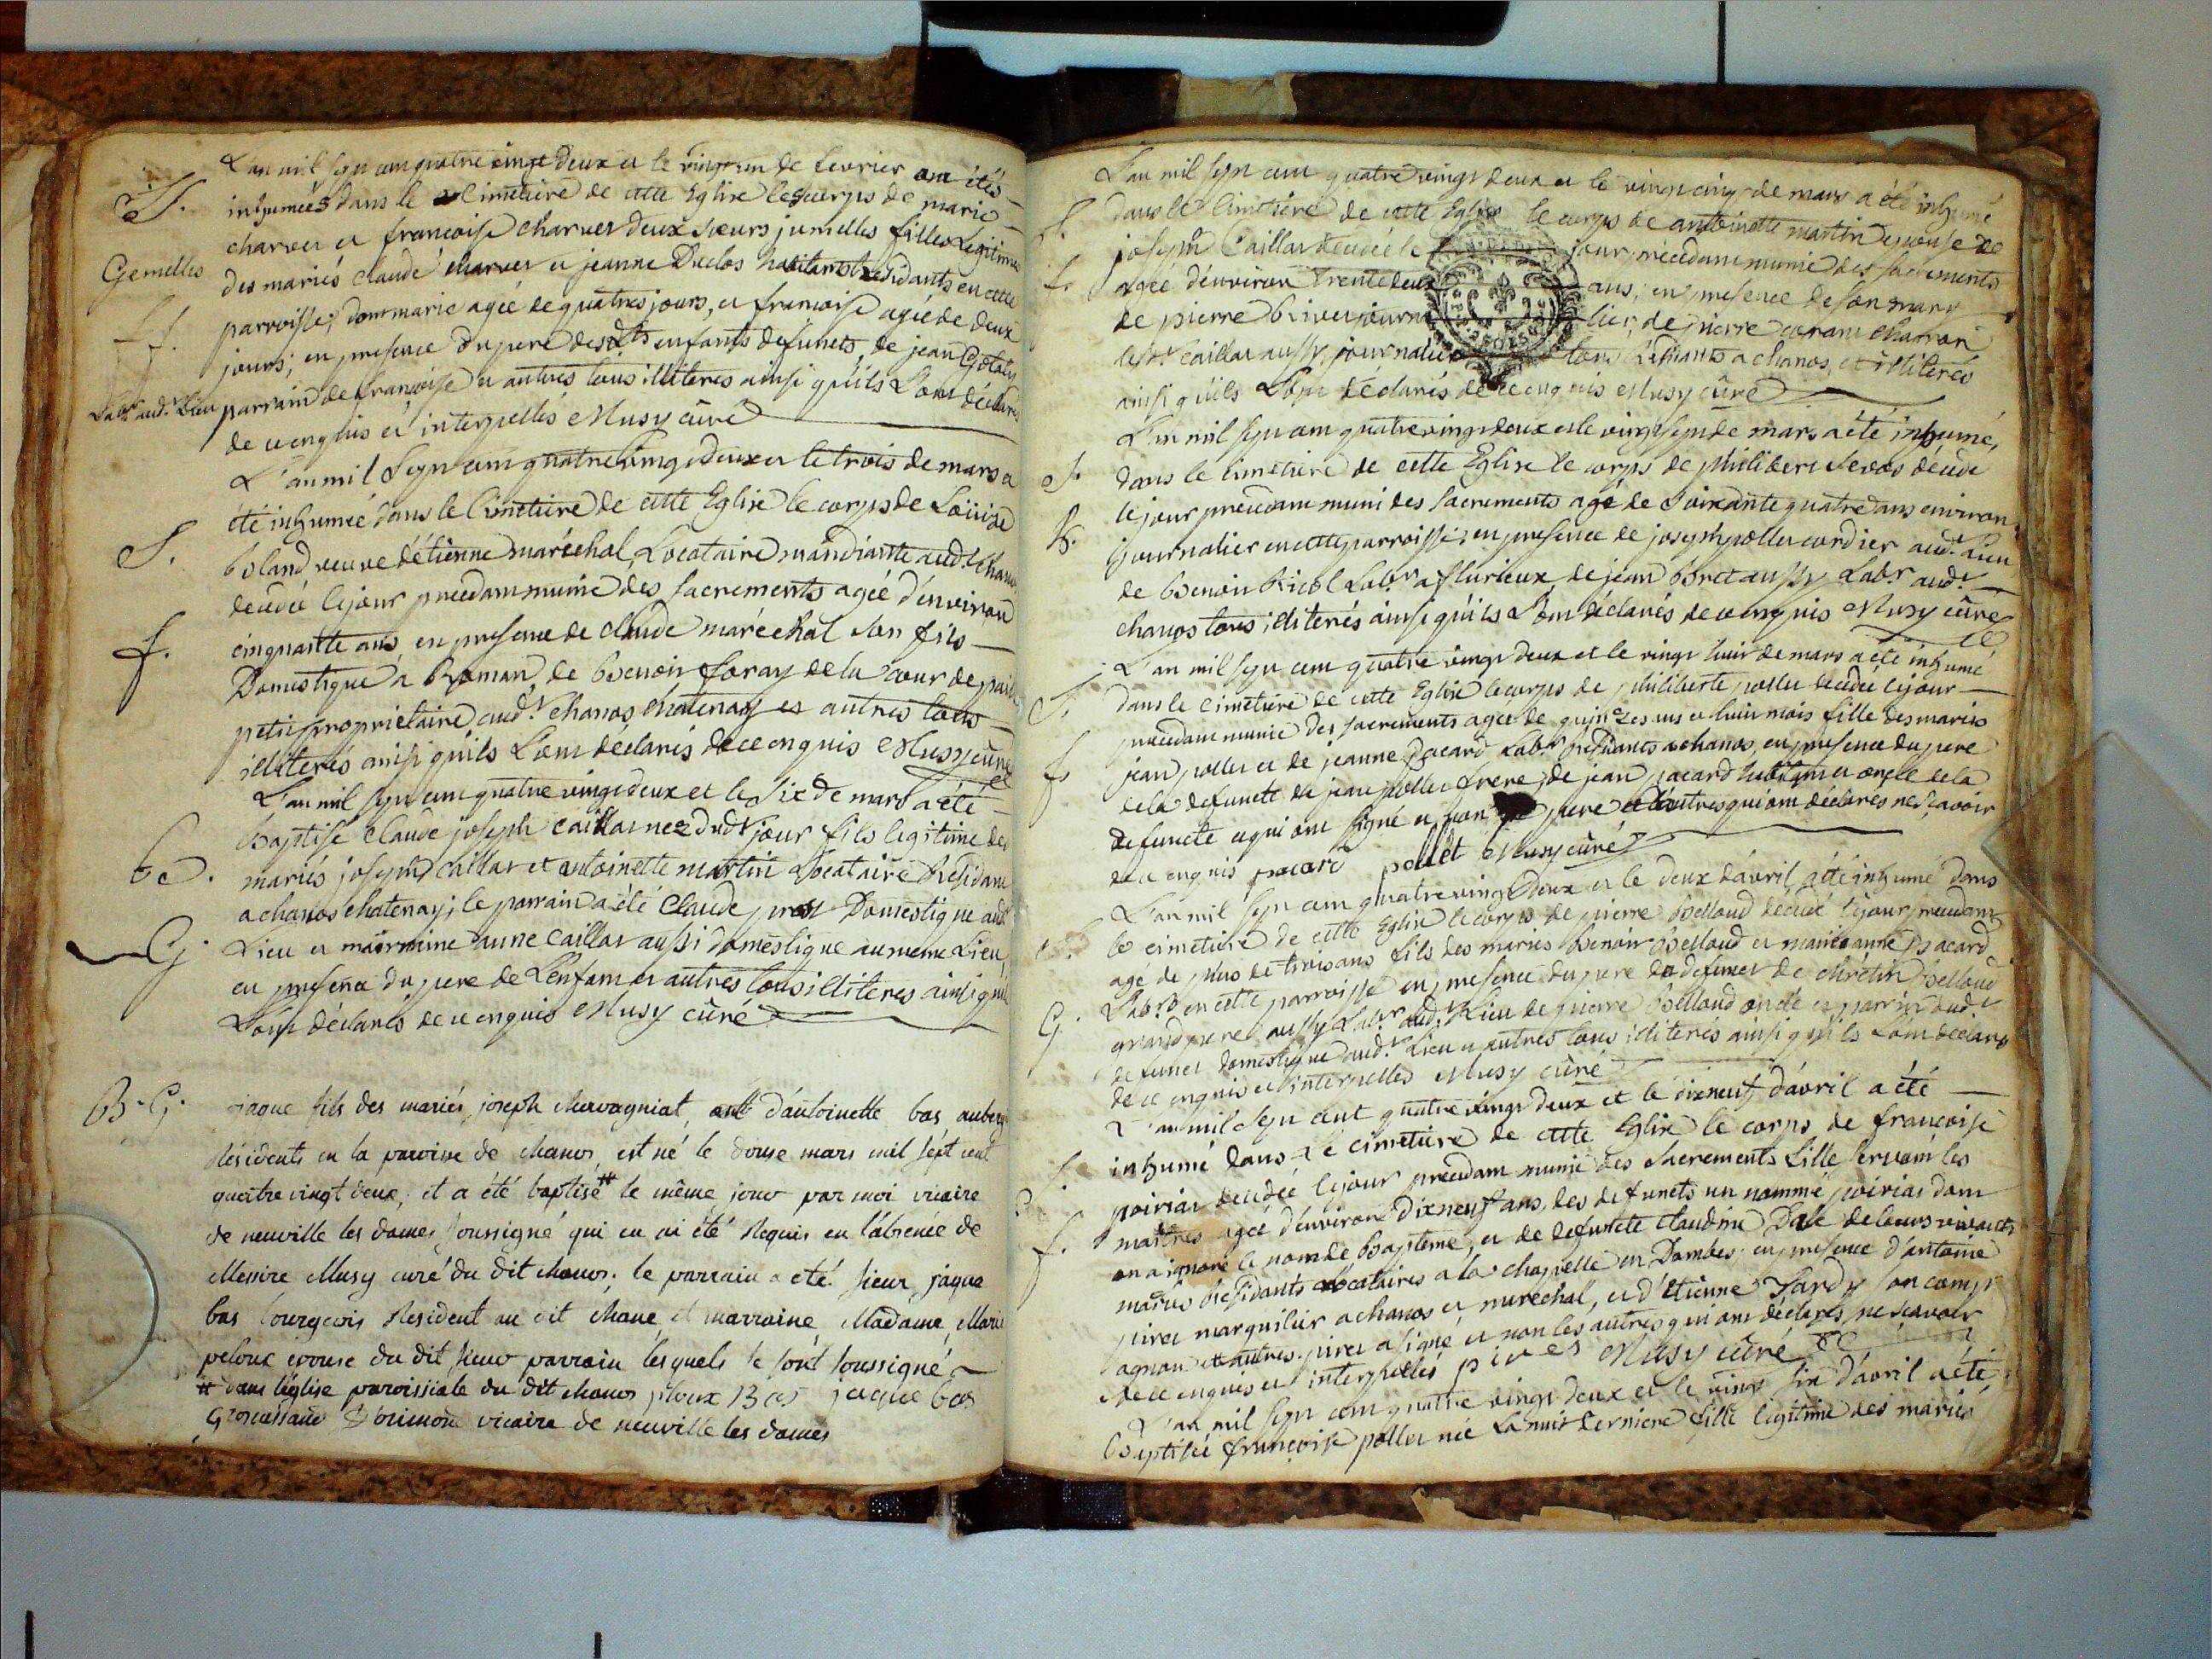 L'an mil sept cent quatre vingt deux et le vingt un de fevrier ont étés
S. inhumées dans le Cimetiere de cette Eglise les corps de marie
charvet et francoise charvet deux soeurs jumelles filles Legitimes
Gemelles des mariés claude charvet et jeanne Duclos habitants residants en cette
ff. parroisse; dont marie agée de quatres jours, et francoise agée de deux
jours; en presence du pere desdts enfants défunts, de jean
Labr. audt Lieu parrain de françoise et autres tous illiteres ainsi qu'ils L'ont déclarés
de ce enquis et interpellés Musy curé
L'an mil Sept cent quatre vingt deux et le trois de mars a
été inhumée dans le Cimetiere de cette Eglise le corps de Loüise
S. boland veuve détienne maréchal, Locataire mandiante audt chanos
decedée le jour precedant munie des sacrements agée d'environ
f. cinquante ans, en presence de claude maréchal son fils
Domestique a Roman, de Benoit foray de la cour de
petit proprietaire audt. chanos châtenay et autres tous
illiterés ainsi qu'ils L'ont déclarés de ce enquis Musy curé
L'an mil sept cent quatre vingt deux et le Six de mars a été
Baptisé Claude joseph caillat nez dudt jour fils legitime des
b. mariés joseph caillat et antoinette martin Locataire Résidant
a chanos chatenay; le parrain a été Claude Domestique audt
G. Lieu et marraine anne caillat aussi domestique au meme Lieu,
en presence du pere de L'enfant et autres tous illiteres ainsi qu'ils
L'ont déclarés de ce enquis Musy curé
B. G. jaque fils des mariés joseph chervagniat, et d'antoinette bas auberg
Résidents en la paroisse de chanos, est né le douse mars mil sept cent
quatre vingt deux, et a été baptisé # le même jour par moi vicaire
de neuville les dames soussigné qui en ai été Requis en l'absence de
Messire Musy curé du dit chanos. le parrain a été sieur jaque
bas bourgeois Resident au dit chanos et marraine Madame Marie
peloux epouse du dit sieur parrain lesquels se sont soussigné
# dans l'église paroissiale du dit chanos peloux Bas jaque bas
vicaire de neuville les dames
L'an mil sept cent quatre vingt deux et le vingt cinq de mars a été inhumé
S. dans le Cimetiere de cette Eglise le corps de antoinette martin epouse de
joseph Caillat decedée le jour precedant munie des sacrements
f. agée d'environ trente deux ans; en presence de son mary
de pierre journalier, de pierre charron
ledt. caillat aussy journalier tous résidants a chanos, et illiterés
ainsi qu'ils L'ont déclarés de ce enquis Musy curé
L'an mil sept cent quatre vingt deux et le vingt sept de mars a été inhumé,
S. dans le cimetiere de cette Eglise le corps de philibert décédé
le jour precedant muni des sacrements agé de Soixante quatre ans environ
B. journalier en cette parroisse; en presence de joseph pollet cordier audt. Lieu
de Benoit Labr a fleurieux, de jean Bret aussy Labr audt
chanos tous illiterés ainsi qu'ils L'ont déclarés de ce enquis Musy curé
L'an mil sept cent quatre vingt deux et le vingt huit de mars a été inhumé
S. dans le cimetiere de cette Eglise le corps de philiberte pollet decedée le jour
precedant munie des sacrements agée de quinze ans et huit mois fille des mariés
f. jean pollet et de jeanne pacard Labr residants a chanos, en presence du pere
de la defuncte de jean pollet frere, de jean pacard et oncle de la
defuncte et qui ont signé et non le pere et d'autres qui ont déclarés ne sçavoir
de ce enquis pacard pollet Musy curé
L'an mil sept cent quatre vingt deux et le deux d'avril a été inhumé dans
S. le cimetiere de cette Eglise le corps de pierre Belloud decedé le jour precedant
agé de plus de trois ans fils des mariés benoit Belloud et marie anne pacard
G. Labrs en cette parroisse en presence du pere du defunct de chrétin Belloud
grand pere aussy Labr audt. Lieu de pierre Belloud oncle et parrin dudt
defunct domestique audt. Lieu et autres tous illiteres ainsi qu'ils L'ont déclarés
de ce enquis et interpellés Musy curé
L'an mil Sept cent quatre vingt deux et le dixneuf d'avril a été
S. inhumé dans le cimetiere de cette Eglise le corps de francoise
poiriat decedée le jour precedant munie des Sacrements fille servant les
f. maitres agée d'environ Dixneuf ans, des defuncts un nommé poiriat dont
on a ignoré le nom de Baptême, et de defuncte Claudine de leurs vivants
mariés résidants Locataires a la chapelle en Dombes; en presence d'antoine
pivet marguilier a chanos et maréchal, et d'étienne Tardy
agnon et autres. pivet a signé et non les autres qui ont déclarés ne scavoir
de ce enquis et interpellés pivet Musy curé
L'an mil sept cent quatre vingt deux et le vingt six d'avril a été
Baptisée françoise pollet née La nuit derniere fille legitime des mariés